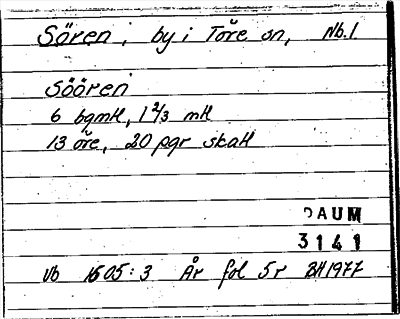 Sören, by i Töre sn, Nb.1
Söören
6 bgmtl, 1 2/3 mtl
13 öre, 20 pgr skatt
DAUM
3141
Vb 1605:3 År fol 5r BH1977